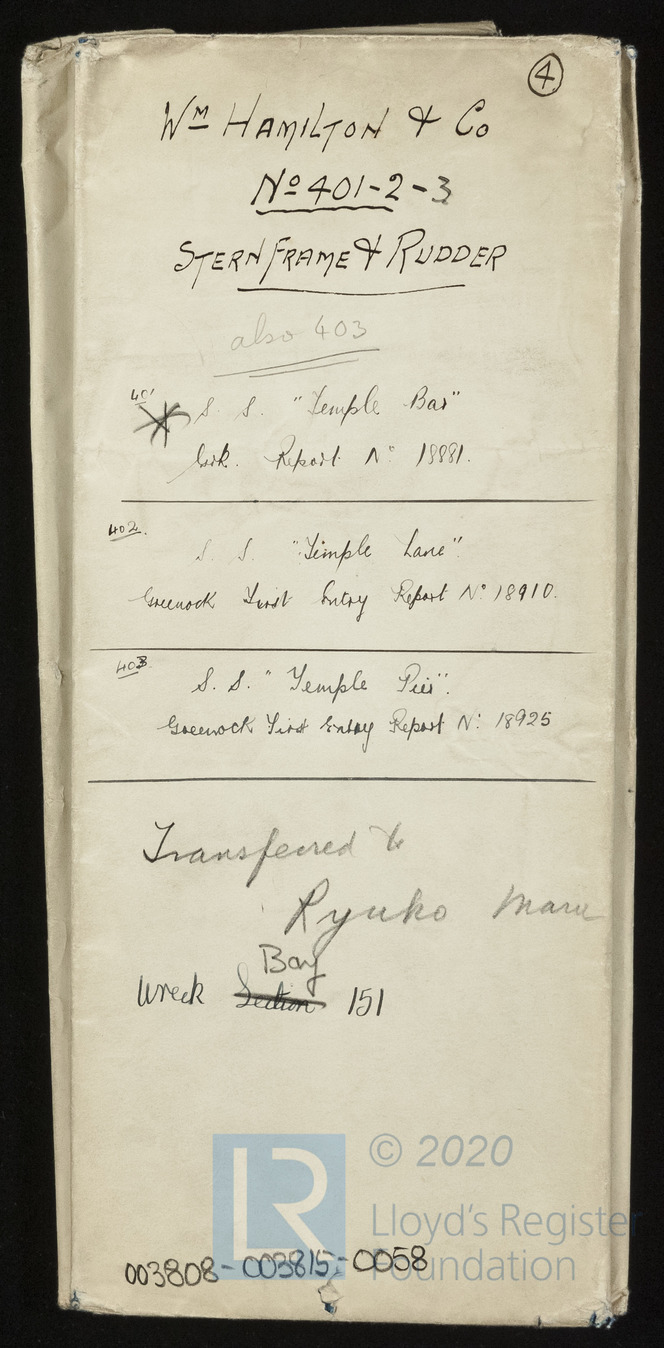 4
Wm Hamilton & Co
No 401-2-3
Stern Frame & Rudder
also 403
401
S. S. "Temple Bar"
Grk. Report No 18881.
402.
S. S. "Temple Lane".
Greenock First Entry Report No 18910.
403
S. S. "Temple Pier".
Greenock First Entry Report No: 18925
Transferred to
Ryuko Maru
Bay
Wreck Section 151
© 2020
LR
Lloyd's Register
Foundation
003808-003815-0058